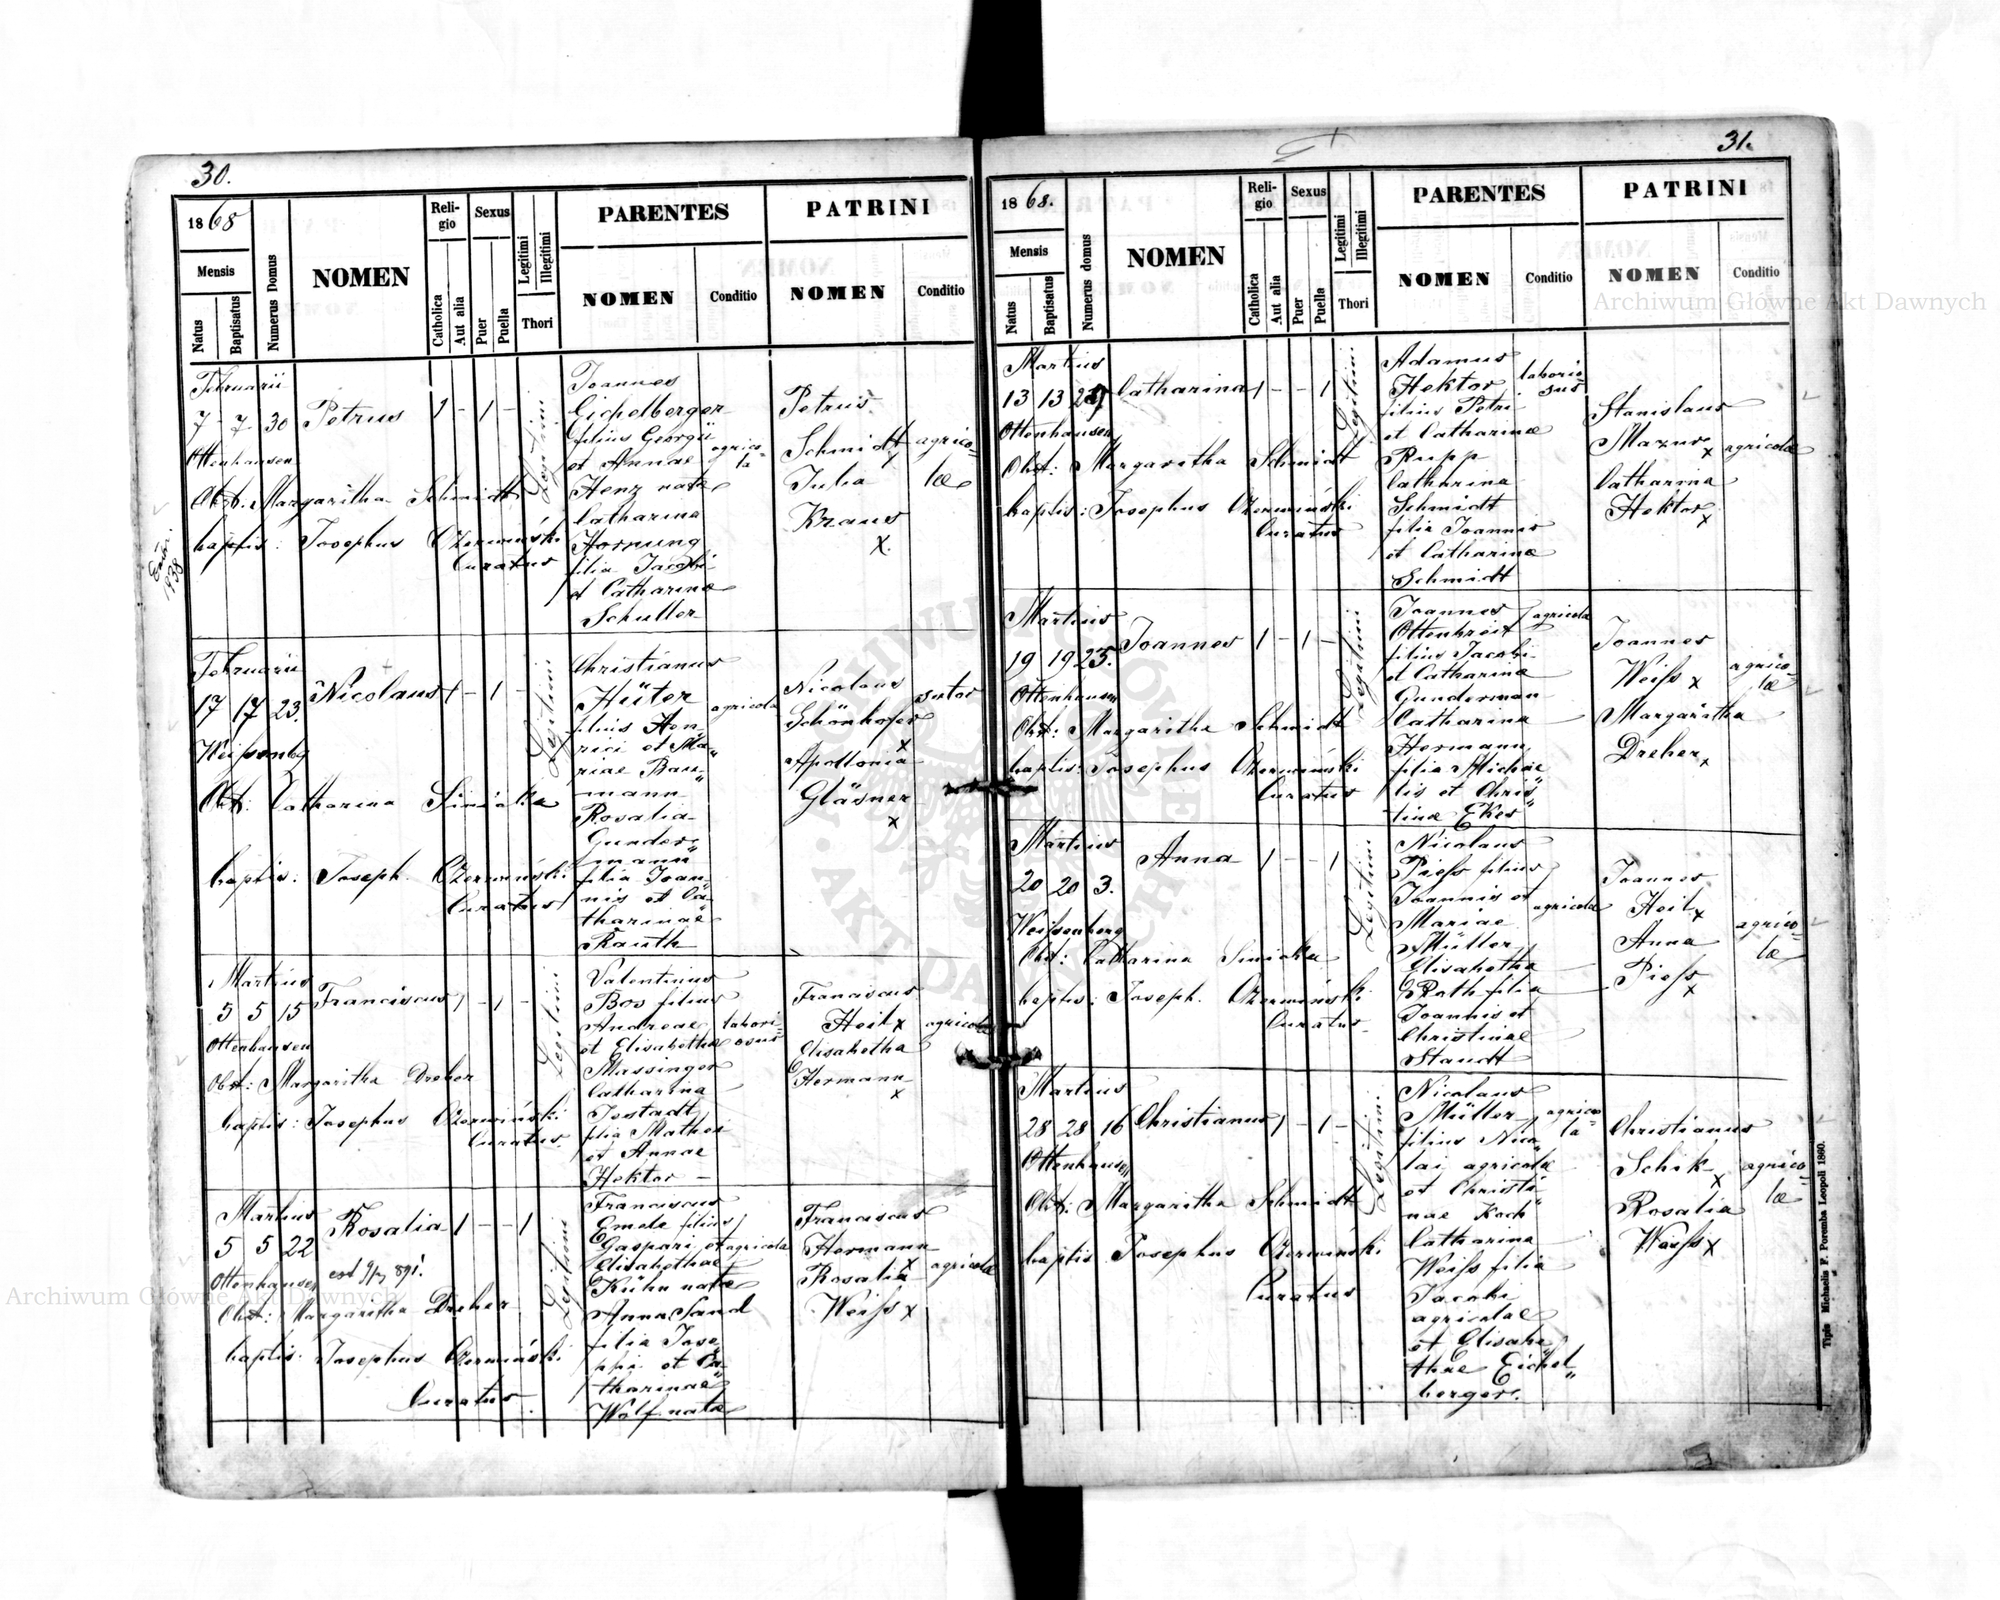 30.
1868
Mensis
Natus
Baptisatus
Numerus Domus
NOMEN
Reli-
gio
Catholica
Aut alia
Sexus
Puer
Puella
Legitimi
Illegitimi
Thori
PARENTES
NOMEN
Conditio
PATRINI
NOMEN
Conditio
Februarii
7 7 30 Petrus 1 - 1 -
Ottenhausen
Obst. Margaritha Schmidt
baptis: Josephus Czermiński
Curatus
Legitimi
Joannes
Eichelberger
filius Georgii
et Annae
Henz nata
Catharina
Hornung
filia Jacobi
et Catharinae
Schuller
agrico-
la
Petrus
Schmidt
Julia
Kraus
x
agrico-
lae
1938
Februarii
17 17 23. Nicolaus 1 - 1 -
Weissenbg
Obst: Catharina Siniaka
baptis: Joseph. Czermiński
Curatus
Legitimi
Christianus
Hüter
filius Hen-
rici et Ma-
riae Bau-
mann
Rosalia
Gunder-
mann
filia Joan-
nis et Ca-
tharinae
Rauth
agricola
Nicolaus
Schönhofer
x
Apollonia
Gläsner
x
sutor
Martius
5 5 15 Franciscus 1 - 1 -
Ottenhausen
Obst: Margaritha Dreher
baptis: Josephus Czermiński
Curatus.
Legitimi
Valentinus
Bos filius
Andreae
et Elisabetha
Massinger
Catharina
Jostadt
filia Mathei
et Annae
Hektor -
labori-
osus
Franciscus
Heil x
Elisabetha
Hermann
x
agricolae
Martius
5 5 22 Rosalia 1 - - 1
Ottenhausen
Obst: Margaritha Dreher
baptis: Josephus Czermiński
Curatus.
Legitimi
Franciscus
Emele filius
Gaspari et
Elisabethae
Kühn nata
Anna Sand
filia Jose-
phi et Ca-
tharinae
Wolf nata
agricola
Franciscus
Hermann
x
Rosalia
Weiss x
agricolae
31.
1868.
Mensis
Natus
Baptisatus
Numerus domus
NOMEN
Reli-
gio
Catholica
Aut alia
Sexus
Puer
Puella
Legitimi
Illegitimi
Thori
PARENTES
NOMEN
Conditio
PATRINI
NOMEN
Conditio
Martius
13 13 Catharina 1 - - 1
Ottenhausen
Obst: Margaritha Schmidt
baptis: Josephus Czermiński
Curatus
Legitimi
Adamus
Hektor
filius Petri
et Catharinae
Rupp
Catharina
Schmidt
filia Joannis
et Catharinae
Schmidt
laborio-
sus
Stanislaus
Mazur
x
Catharina
Hektor
x
agricolae
Martius
19 19 25. Joannes 1 - 1 -
Ottenhausen
Obst: Margaritha Schmidt
baptis: Josephus Czermiński
Curatus
Legitimi
Joannes
Ottenbreit
filius Jacobi
et Catharinae
Gunderman
Catharina
Hermann
filia Michae
lis et Chris
tinae Ekes
agricola
Joannes
Weiss x
Margaritha
Dreher x
agrico-
lae
Martius
20 20 3. Anna 1 - - 1
Weissenberg
Obst: Catharina Siniaka
baptis: Joseph. Czermiński
Curatus
Legitimi
Nicolaus
Piess filius
Joannis et
Mariae
Müller
Elisabetha
Rath filia
Joannis et
Christinae
Staudt
agricola
Joannes
Heil
x
Anna
Piess
x
agrico-
lae
Martius
28 28 16 Christianus 1 - 1 -
Ottenhausen
Obst: Margaritha Schmidt
baptis Josephus Czermiński
Curatus
Legitimi
Nicolaus
Müller
filius Nico
lai agricolae
et Christi
nae Koch
Catharina
Weiss filia
Jacobi
agricolae
et Elisabe
thae Eichel
berger.
agrico-
la
Christianus
Schik
x
Rosalia
Weiss x
agrico
lae
Tipis Michaelis F. Poremba Leopoli 1860.
Archiwum Główne Akt Dawnych
Archiwum Główne Akt Dawnych
ARCHIWUM GŁÓWNE AKT DAWNYCH